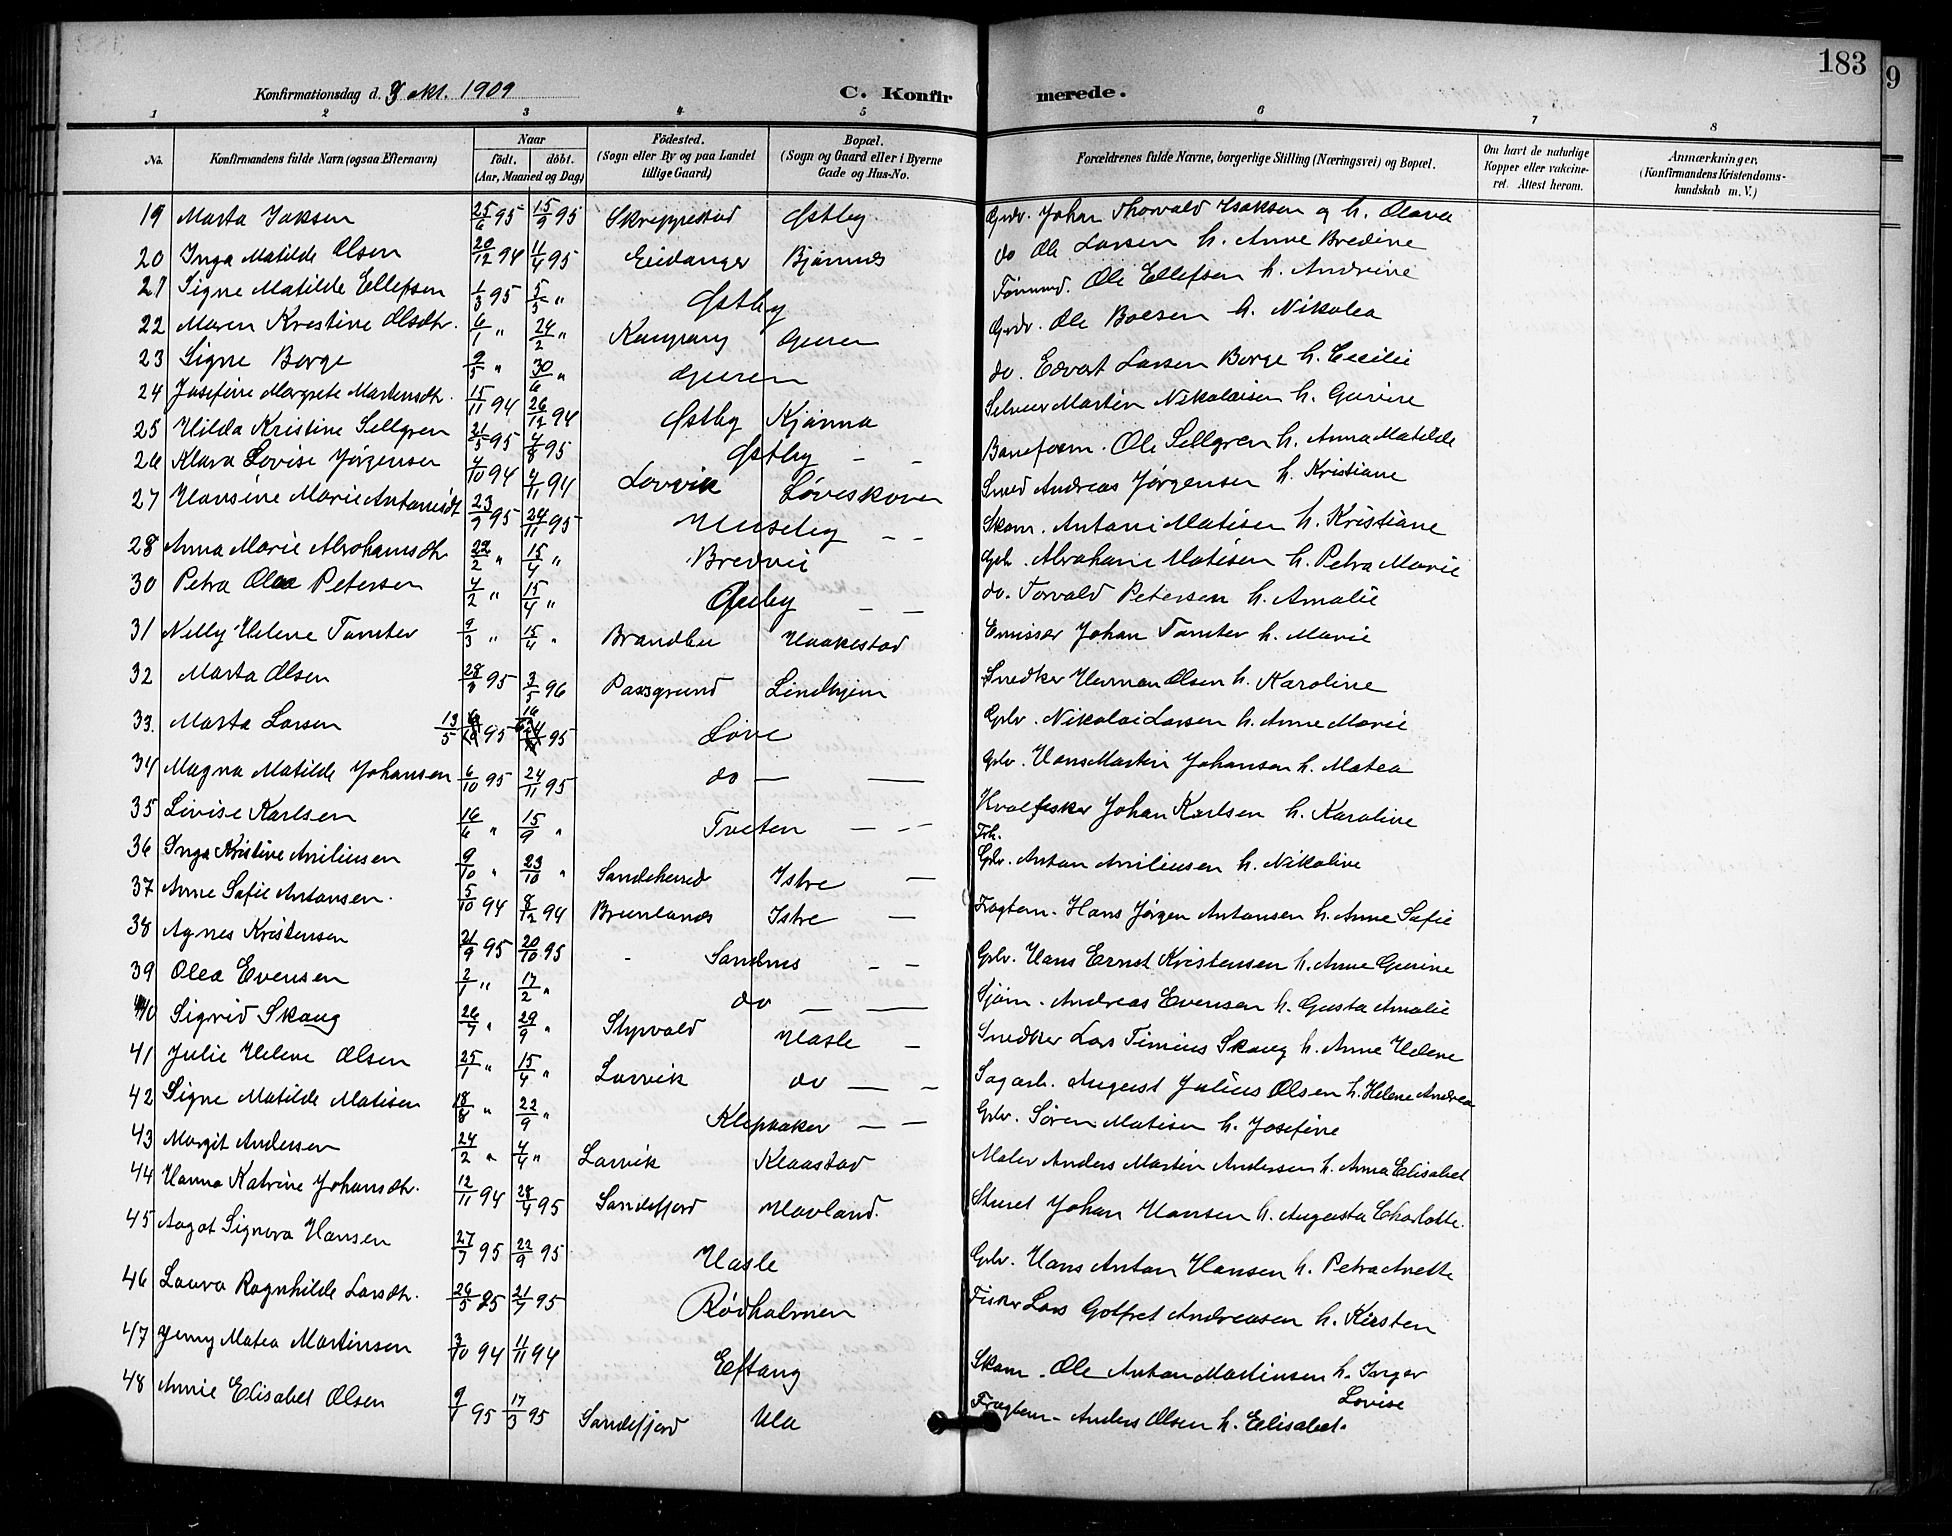 183
9
Konfirmationsdag d. 3 okt. 1909
C. Konfir merede.
1 2 3 4 5 6 7 8
No. Konfirmandens fulde Navn (ogsaa Efternavn) Naar født. døbt. (Aar, Maaned og Dag) Födested. (Sogn eller By og paa Landet tillige Gaard) Bopæl. (Sogn og Gaard eller i Byerne Gade og Hus-No. Forældrenes fulde Navne, borgerlige Stilling (Næringsvei) og Bopæl. Om havt de naturlige Kopper eller vakcineret. Attest herom. Anmærkninger. (Konfirmandens Kristendomskundskab m. V.)
19 Marta Isaksen 25/6 95 15/9 95 Skreppestad Østby Grdr. Johan Thorvald Isaksen og h. Olava
20 Inga Matilde Olsen 20/12 94 11/4 95 Eidanger Bjønnes do Ole Larsen h. Anne Bredine
21 Signe Matilde Ellefsen 1/3 95 5/5 " Østby Tømmd. Ole Ellefsen h. Andrine
22 Maren Kristine Olsdtr. 6/1 " 24/2 " Kaupang Guren Grdr. Ole Boesen h. Nikolea
23 Signe Berge 9/5 " 30/6 " Guren do. Edvart Larsen Berge h. Cecilie
24 Josefine Margrete Martensdtr. 15/11 94 26/12 94 Østby Kjønna Selveier Martin Nikolaisen h. Gurine
25 Hilda Kristine Sellgren 21/5 95 4/8 95 Østby — - Baneform. Ole Sellgren h. Anna Matilde
26 Klara Lovise Jørgensen 4/10 94 4/11 94 Larvik Løveskoven Smed Andreas Jørgensen h. Kristiane
27 Hansine Marie Antonisdt 23/9 95 24/11 95 Huseby - - Skom. Antoni Matisen h. Kristiane
28 Anna Marie Abrahamsdtr 22/2 " 15/4 " Bredvei Gbr. Abraham Matisen h. Petra Marie
30 Petra Olea Petersen 4/2 " 15/4 " Østby — — do. Torvald Petersen h. Amalie
31 Nelly Helene Tomter 9/3 " 15/4 " Brandbu Haakestad Emissær Johan Tomter h. Marie
32 Marta Olsen 28/9 95 3/5 96 Porsgrund Lindhjem Snedker Herman Olsen h. Karoline
33. Marta Larsen 13/5 95 95 Løve Gbr. Nikolai Larsen h. Anne Marie
34 Magna Matilde Johansen 6/10 95 24/11 95 do — — Gbr. Hans Martin Johansen h. Matea
35 Lovise Karlsen 16/6 " 15/9 " Tveten — - - Hvalfisker Johan Karlsen h. Karoline
36 Inga Kristine Anilinsen 9/10 " 23/10 " Sandeherred Istre — Gbr. Anton Anilinsen h. Nikoline
37 Anne Sofie Antonsen. 5/10 94 8/12 94 Brunlanes Istre — Fragtem. Hans Jørgen Antonsen h. Anne Sofie
38 Agnes Kristensen 21/9 95 20/10 95 - Sandnes - - Gbr. Hans Ernst Kristensen h. Anne Gurine
39 Olea Evensen 2/1 " 17/2 " do — — Sjøm. Andreas Evensen h. Gusta Amalie
40 Sigrid Skaug 26/7 " 29/9 " Styrvold Hasle — Snedker Lars Timius Skaug h. Anne Helene
41 Julie Helene Olsen 25/1 " 15/4 " Larvik do — - Sagarb. August Julius Olsen h. Helene Andrea
42 Signe Matilde Matisen 18/8 " 22/9 " Klepaker — — Gbr. Søren Matisen h. Josefine
43 Margit Andersen 24/2 " 4/4 " Larvik Klaastad Maler Anders Martin Andersen h. Anna Elisabet
44 Hanna Katrine Johansdtr. 12/11 94 28/4 95 Sandefjord Havland. Stuert Johan Hansen h. Augusta Charlotte.
45 Aagot Signora Hansen 27/7 95 22/9 95 Hasle Gbr. Hans Anton Hansen h. Petra Anette
46 Laura Ragnhilde Larsdtr. 26/5 95 21/7 95 Rødholmen Fisker Lars Gotfret Andreasen h. Kirsten
47 Jenny Matea Martinsen 3/10 94 11/11 94 Eftang Skom. Ole Anton Martinsen h. Inger Lovise
48 Annie Elisabet Olsen 9/1 95 17/3 95 Sandefjord Ula Fragtem - Anders Olsen h. Elisabet.